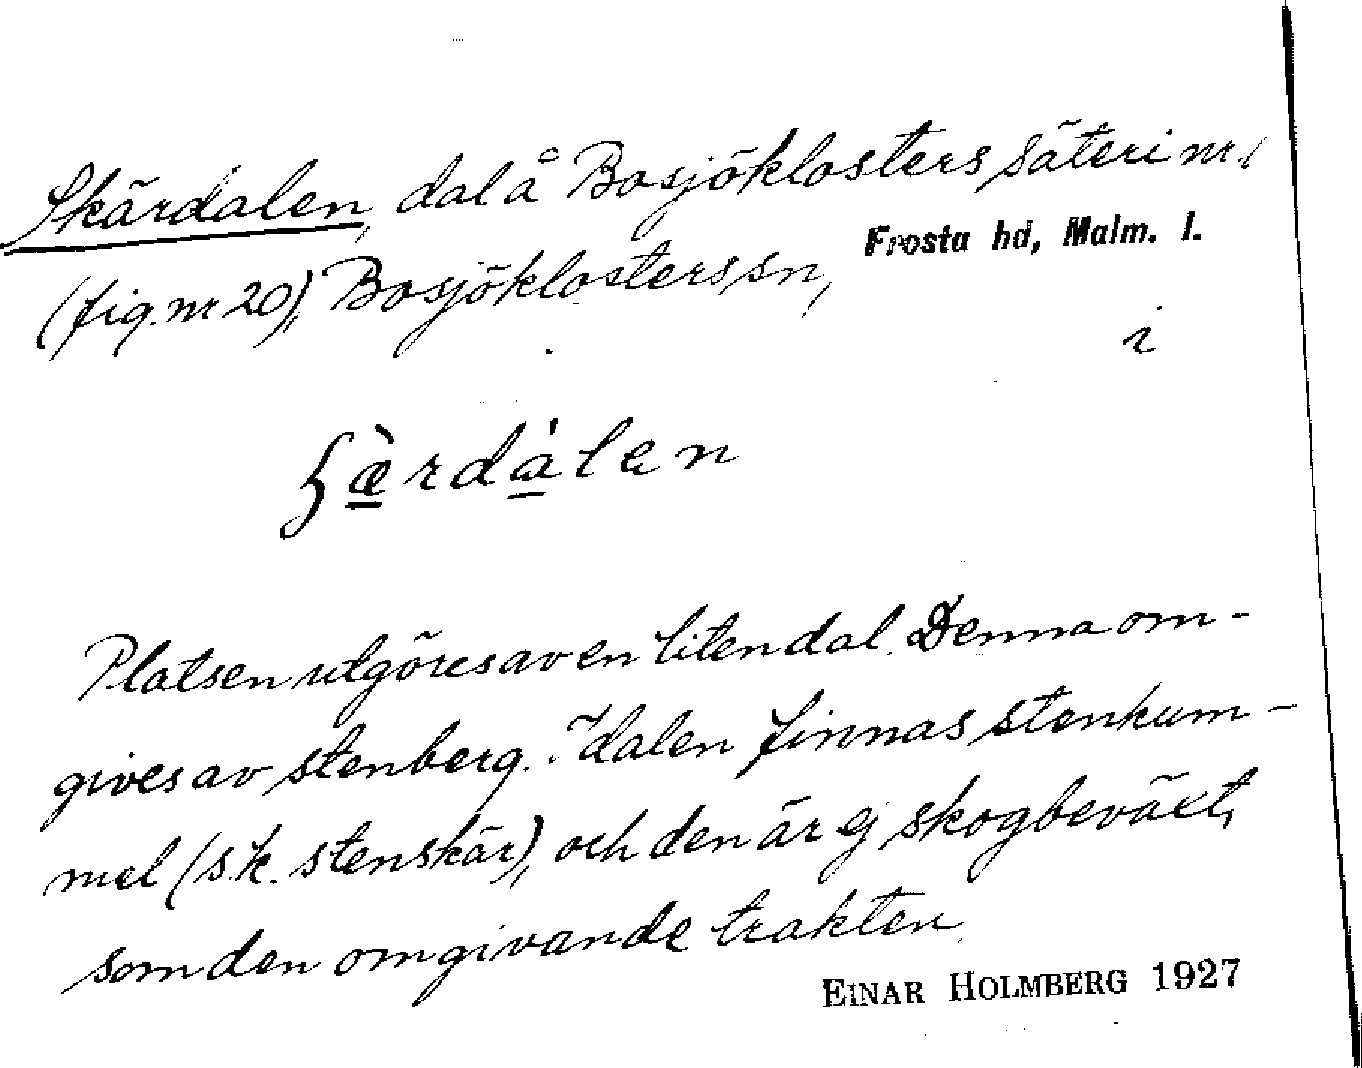 Skärdalen, dal å Bosjöklosters säteri nr 1
(fig. nr 20), Bosjöklosters sn, Frosta hd, Malm. l.
i
ʃæ̀rdálen
Platsen utgöres av en liten dal. Denna om-
gives av stenberg. I dalen finnas stenkum-
mel (s.k. stenskär), och den är ej skogbeväxt,
som den omgivande trakten.
EINAR HOLMBERG 1927